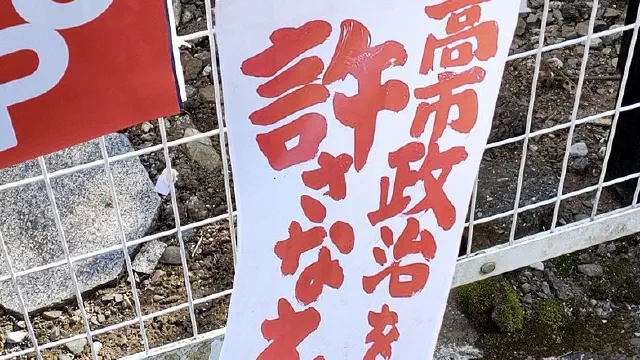 高市政治を
許さない